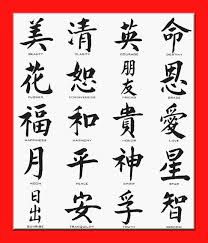 美 清 英 命
BEAUTY CLARITY COURAGE DESTINY
花 恕 朋友 恩
FLOWER FORGIVENESS GRACE
福 和 貴 愛
HAPPINESS HARMONY HONOR LOVE
月 平 神 星
MOON PEACE SPIRIT STAR
日出 安 孚 智
SUNRISE TRANQUILITY TRUST WISDOM